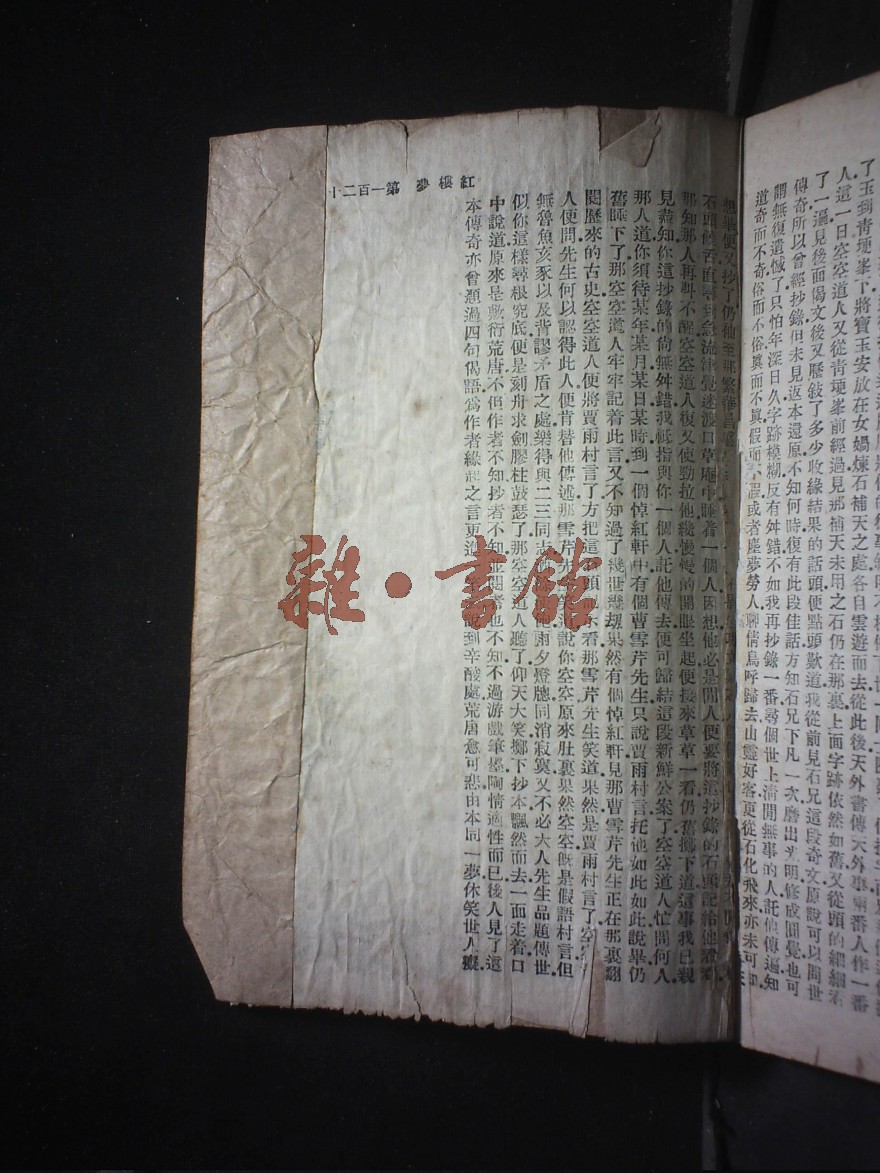 了玉到靑埂峯下將寶玉安放在女媧煉石補天之處各自雲遊而去從此後天外書傳天外事兩番人作一番
人這一日空空道人又從靑埂峯前經過見那補天未用之石仍在那裏上面字跡依然如舊又從頭的細細看
了一遍見後面偈文後又歷敍了多少收緣結果的話頭便點頭歎道我從前見石兄這段奇文原說可以聞世
傳奇所以曾經抄錄但未見返本還原不知何時復有此段佳話方知石兄下凡一次磨出光明修成圓覺也可
謂無復遺憾了只怕年深日久字跡模糊反有舛錯不如我再抄錄一番尋個世上淸閒無事的人託他傳遍知
道奇而不奇俗而不俗眞而不眞假而不假或者塵夢勞人聊倩鳥呼歸去山靈好客更從石化飛來亦未可知
便又抄了仍袖至那繁華昌
石頭 直尋到急流津覺迷渡口草庵中睡着一個人因想他必是閒人便要將這抄錄的石頭記給他看看
那知那人再呌不醒空空道人復又使勁拉他纔慢慢的開眼坐起便接來草草一看仍舊擲下道這事我已親
見盡知你這抄錄的尙無舛錯我祇指與你一個人託他傳去便可歸結這段新鮮公案了空空道人忙問何人
那人道你須待某年某月某日某時到一個悼紅軒中有個曹雪芹先生只說賈雨村言托他如此如此說畢仍
舊睡下了那空空道人牢牢記着此言又不知過了幾世幾劫果然有個悼紅軒見那曹雪芹先生正在那裏翻
閱歷來的古史空空道人便將賈雨村言了方把這 頭 示看那雪芹先生笑道果然是賈雨村言了空空
人便問先生何以認得此人便肯替他傳述那雪芹先 笑 說你空空原來肚裏果然空空旣是假語村言但
無魯魚亥豕以及背謬矛盾之處樂得與二三同志 雨夕燈牕同消寂寞又不必大人先生品題傳世
似你這樣尋根究底便是刻舟求劍膠柱鼓瑟了那空空道人聽了仰天大笑擲下抄本飄然而去一面走着口
中說道原來是敷衍荒唐不但作者不知抄者不知並閱者也不知不過游戲筆墨陶情適性而已後人見了這
本傳奇亦曾題過四句偈語爲作者緣起之言更進 說到辛酸處荒唐愈可悲由來同一夢休笑世人癡
紅樓夢 第一百二十
雜·書館